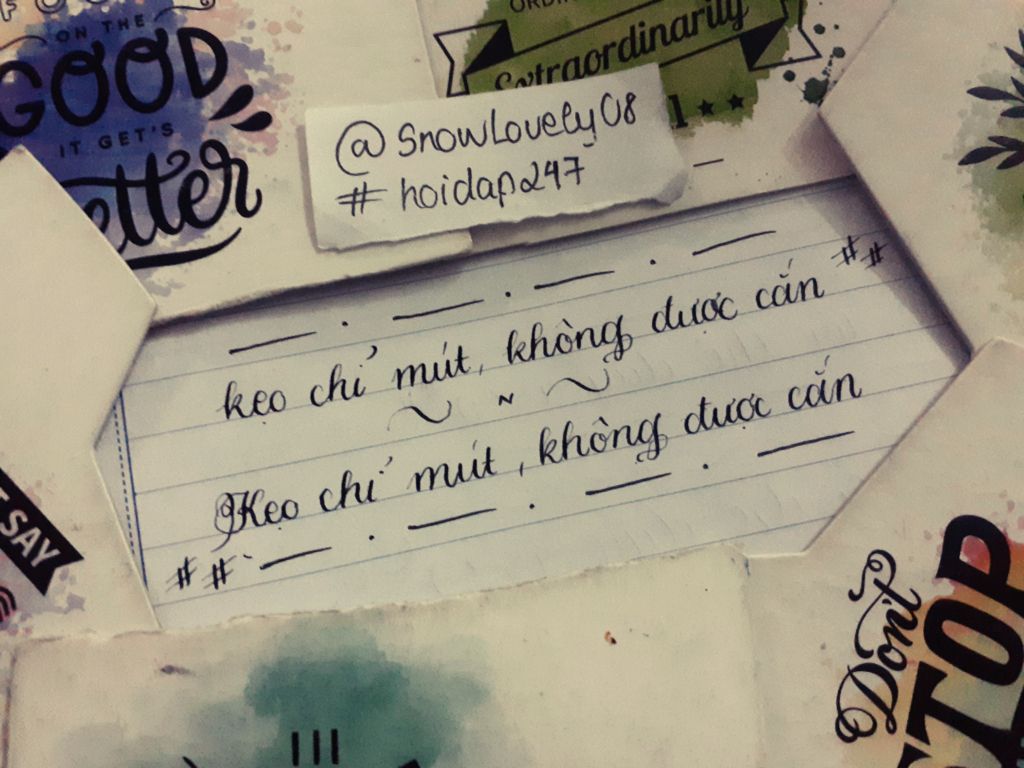 ON THE
GOOD
IT GET'S
Extraordinarily
@SnowLovely08
# hoidap247
kẹo chỉ mút, không được cắn ##
~ ~ ~
Kẹo chỉ mút, không được cắn
##
SAY
Don't
STOP